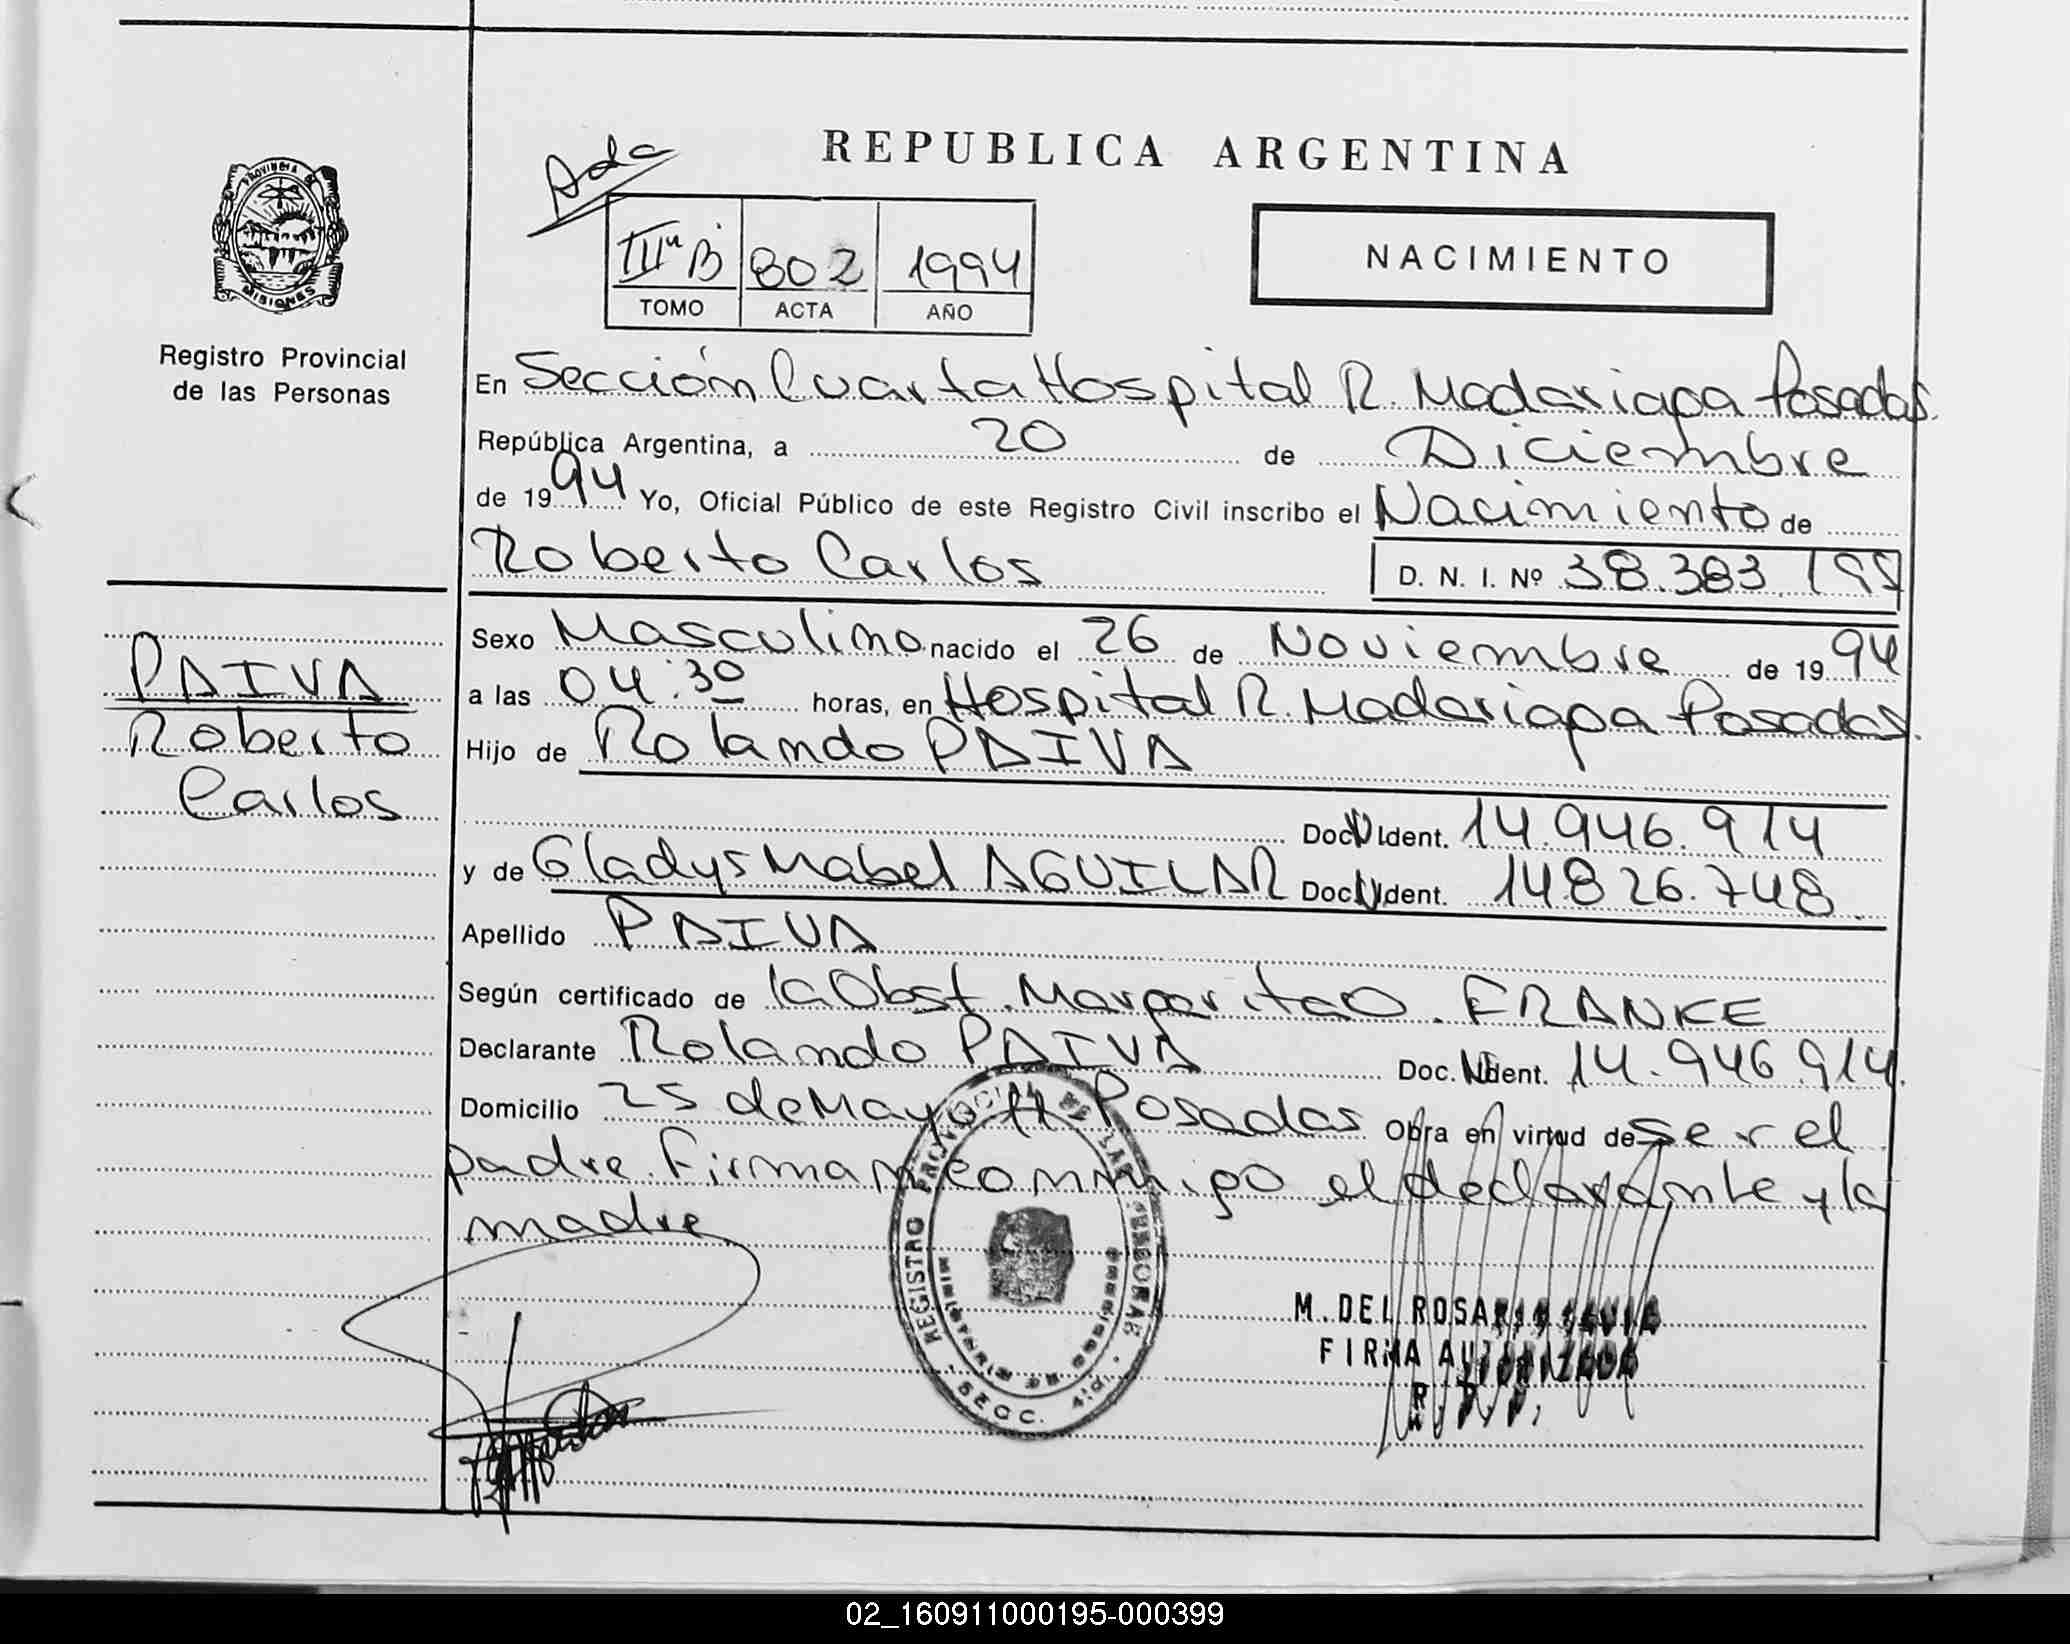 REPUBLICA ARGENTINA
Ada
III "B" 802 1994
TOMO ACTA AÑO
NACIMIENTO
PROVINCIA DE
MISIONES
Registro Provincial
de las Personas
En Sección Cuarta Hospital R. Madariaga Posadas.
República Argentina, a 20 de Diciembre
de 1994 Yo, Oficial Público de este Registro Civil inscribo el Nacimiento de
Roberto Carlos D. N. I. Nº 38.383.199
Sexo Masculino nacido el 26 de Noviembre de 1994
a las 04:30 horas, en Hospital R. Madariaga Posadas.
Hijo de Rolando PAIVA
Doc. Ident. 14.946.914
y de Gladys Mabel AGUILAR Doc. Ident. 14.826.748.
Apellido PAIVA
Según certificado de la Obst. Margarita O. FRANKE
Declarante Rolando PAIVA Doc. Ident. 14.946.914.
Domicilio 25 de Mayo Posadas Obra en virtud de ser el
padre. Firman conmigo el declarante y la
madre
PAIVA
Roberto
Carlos
REGISTRO PROVINCIAL DE LAS PERSONAS
SECC. 4
M. DEL ROSARIO
FIRMA AUTORIZADA
R. P. P.
02_160911000195-000399